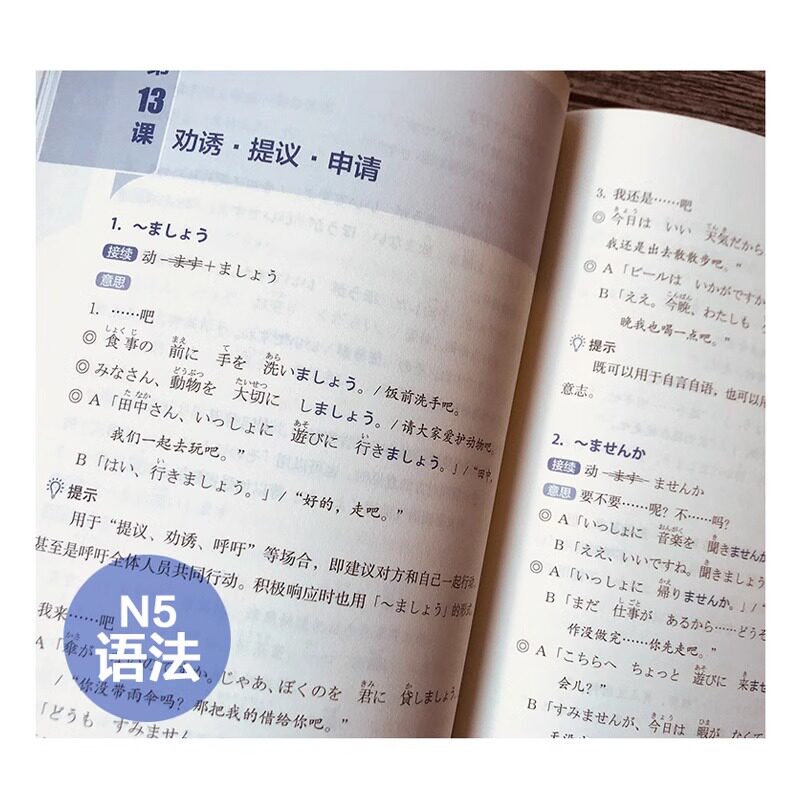 第
13
课
劝诱·提议·申请
1. ～ましょう
接续 动-ます+ましょう
意思
1. ……吧
◎ 食事の 前に 手を 洗いましょう。/饭前洗手吧。
◎ みなさん、動物を 大切に しましょう。/请大家爱护动物吧。
◎ A「田中さん、いっしょに 遊びに 行きましょう。」/“田中，
我们一起去玩吧。”
B「はい、行きましょう。」/“好的，走吧。”
提示
用于“提议、劝诱、呼吁”等场合，即建议对方和自己一起行动，
甚至是呼吁全体人员共同行动。积极响应时也用「～ましょう」的形式
我来……吧
A「傘が
か。じゃあ、ぼくのを 君に 貸しましょう
/“你没带雨伞吗？那把我的借给你吧。”
「どうも すみません
3. 我还是……吧
◎ 今日は いい 天気だから
我还是出去散散步吧。”
◎ A「ビールは いかがですか
B「ええ。今晩、わたしも
晚我也喝一点吧。”
提示
既可以用于自言自语，也可以用
意志。
2. ～ませんか
接续 动-ます-ませんか
意思 要不要……呢？不……吗？
◎ A「いっしょに 音楽を 聞きませんか
B「ええ、いいですね。聞きましょう
◎ A「いっしょに 帰りませんか。」/“
B「まだ 仕事が あるから……どうぞ
作没做完……你先走吧。”
◎ A「こちらへ ちょっと 遊びに 来ませ
会儿？”
B「すみませんが、今日は 暇が なくて
N5
语法